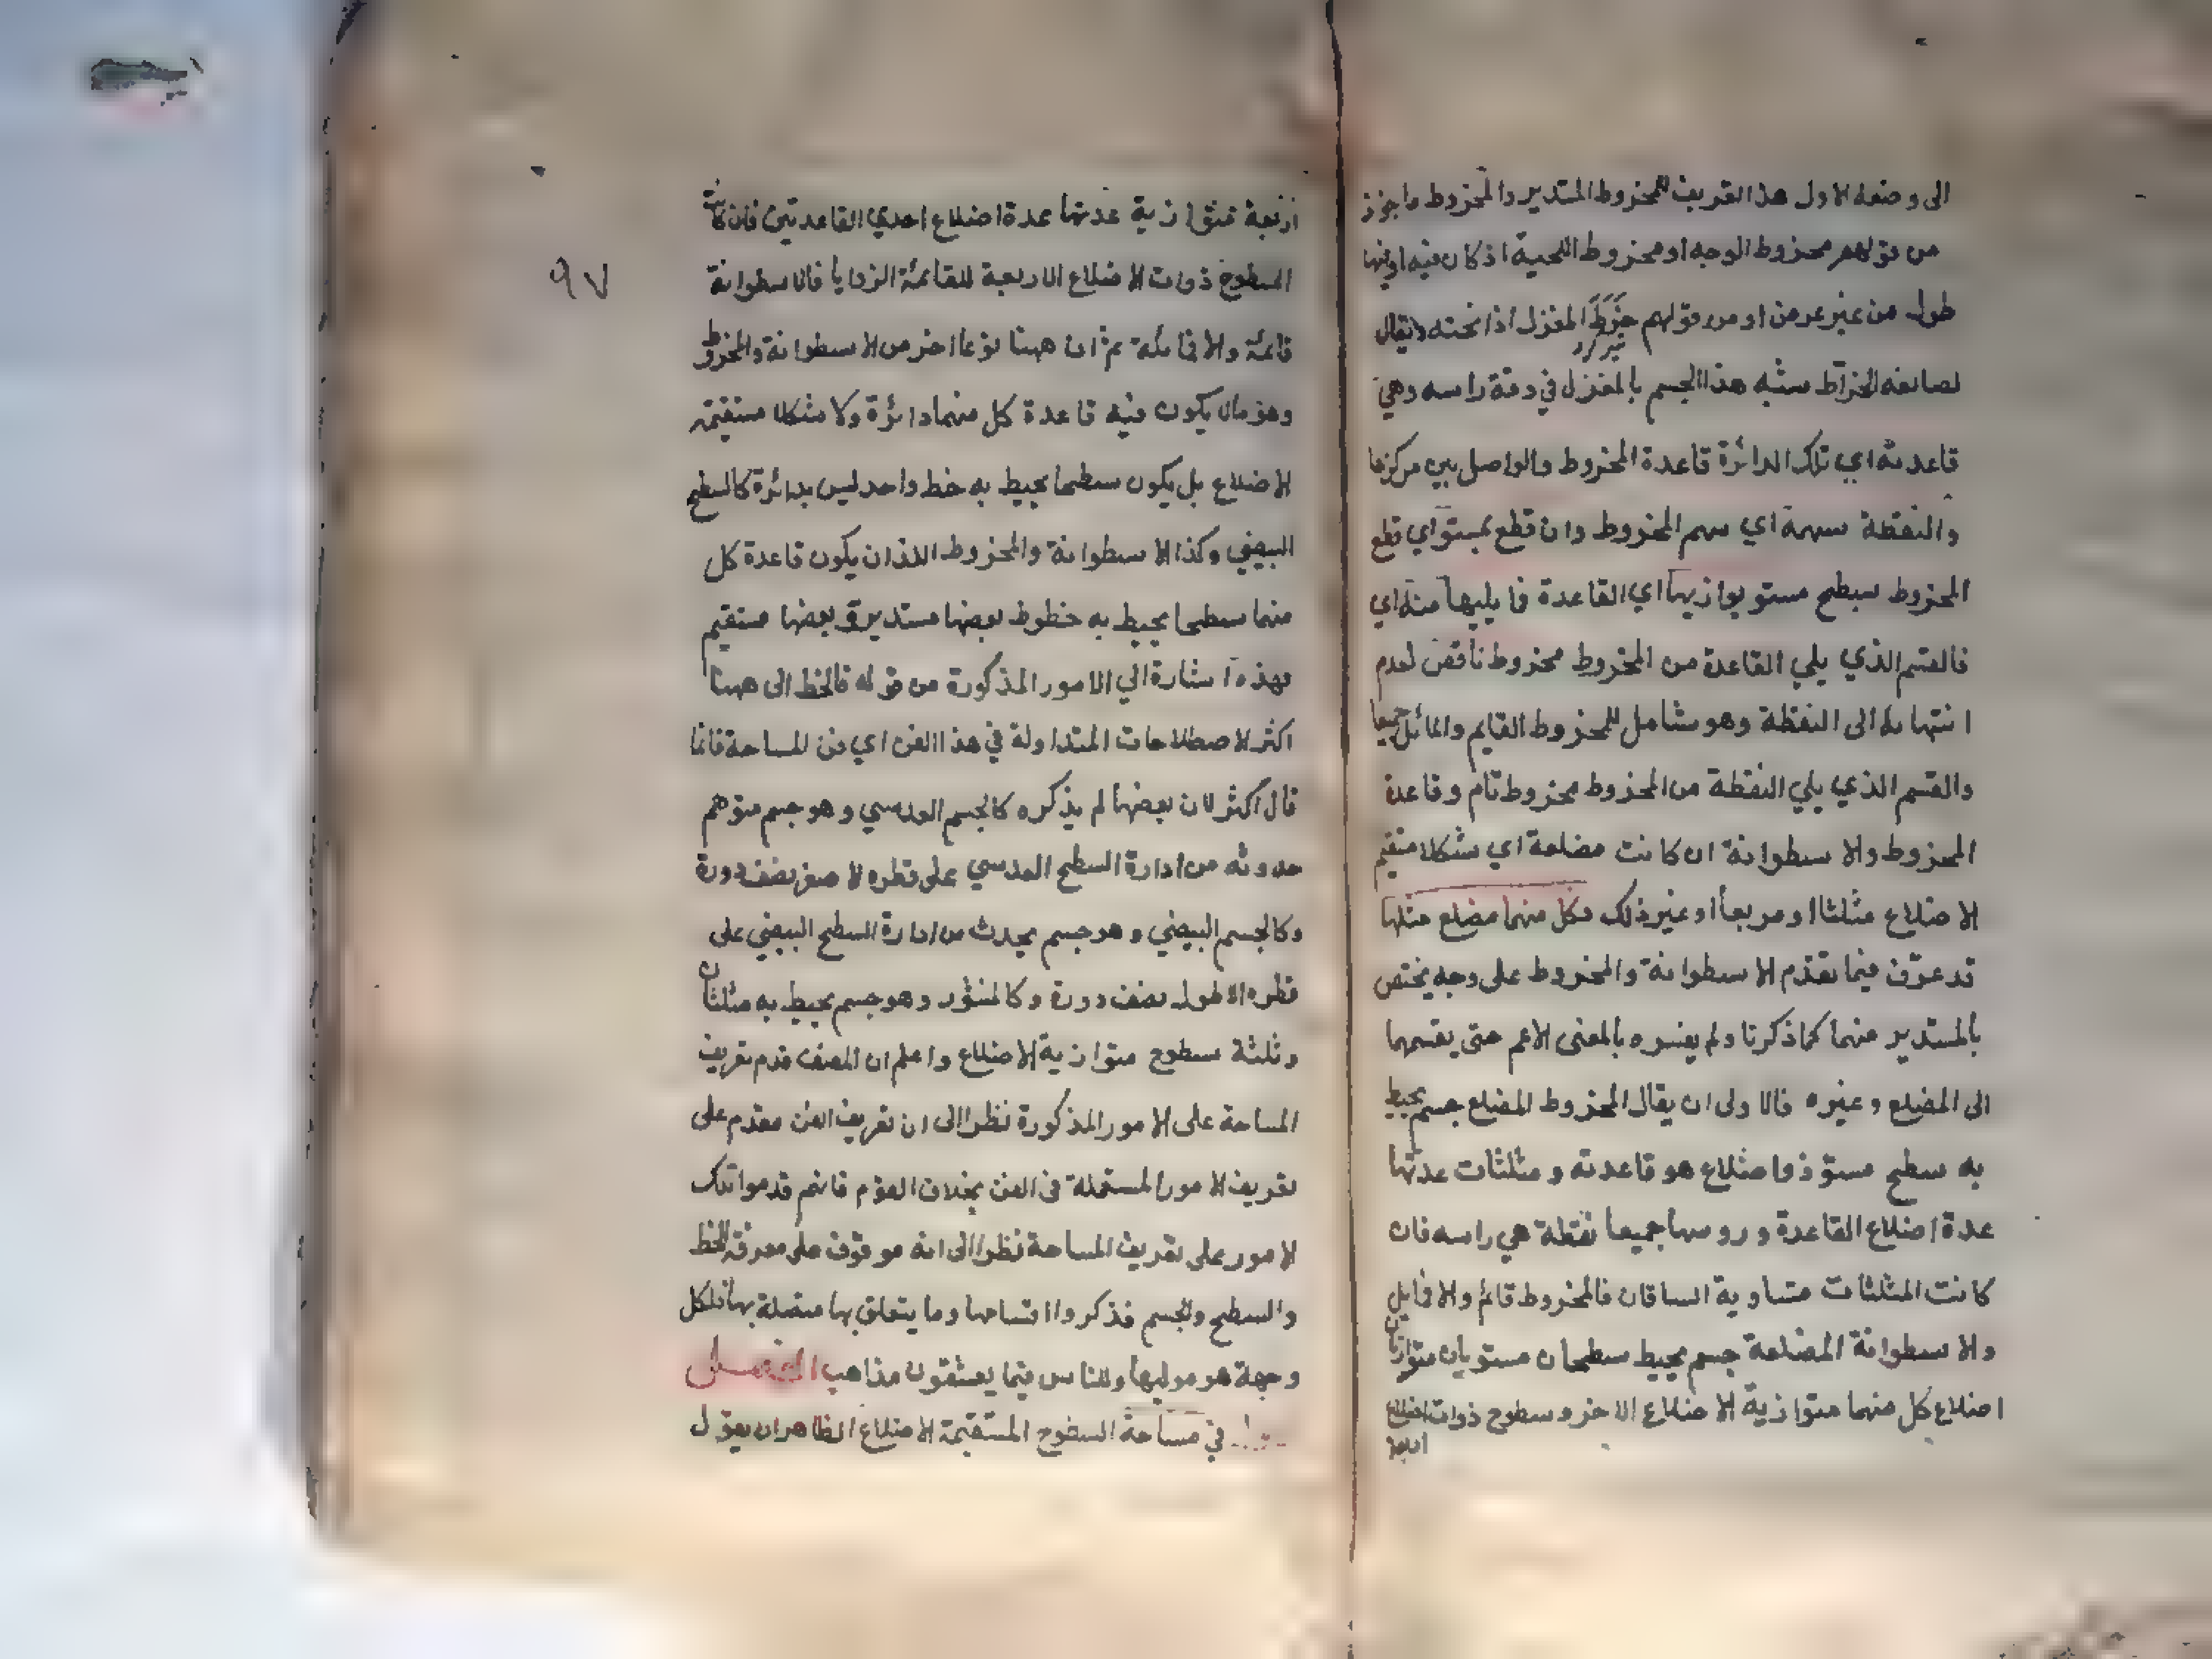 الى وضعه الاول هذا التعريف للمخروط المستدير والمخروط ماخوذ
من قولهم مخروط الوجه او مخروط اللحية اذ كان فيه او فيها
طول من غير عرض او من قولهم خرط المغزل اذا نحته ويقال
لصانعه الخراط سشبه هذا الجسم بالمغزل في دقة راسه وهي
قاعدته اي تلك الدائرة قاعدة المخروط والواصل بين مركزها
والنقطة سهمه اي سهم المخروط وان قطع بمستو اي قطع
المخروط سطح مستو يوازيها اي القاعدة فما يليها منه اي
فالقسم الذي يلي القاعدة من المخروط مخروط ناقص لعدم
انتهائه الى النقطة وهو شامل للمخروط القايم والمائل جميعا
والقسم الذي يلي النقطة من المخروط مخروط تام وقاعدة
المخروط والاسطوانة ان كانت مضلعة اي شكلا مستقيم
الاضلاع مثلثا او مربعا او غير ذلك فكل منهما مضلع مثلها
قد عرف فيما تقدم الاسطوانة والمخروط على وجه يختص
بالمستدير منهما كما ذكرنا ولم يفسره بالمعنى الاعم حتى يقسمهما
الى المضلع وغيره فالاولى ان يقال المخروط المضلع جسم يحيط
به سطح مستو ذو اضلاع هو قاعدته ومثلثات عدتها
عدة اضلاع القاعدة وروسها جميعا نقطة هي راسه فان
كانت المثلثات متساوية الساقان فالمخروط قائم والا فمايل
والاسطوانة المضلعة جسم يحيط سطحان مستويان متوازيان
اضلاع كل منهما متوازية الاضلاع الاخر وسطوح ذوات اضلاع
اربعة
اربعة متوازية عدتها عدة اضلاع احدي القاعدتين فان كانت
السطوح ذوات الاضلاع الاربعة للقائمة الزوايا فالاسطوانة
٩٧
قائمة والا فمائلة ثم ان ههنا نوعا اخر من الاسطوانة والمخروط
وهو مالا يكون فيه قاعدة كل منهما دائرة ولا شكلا مستقيمة
الاضلاع بل يكون سطحا يحيط به خط واحد ليس بدائرة كالسطح
البيضي وكذا الاسطوانة والمخروط اللذان يكون قاعدة كل
منهما سطحا يحيط به خطوط بعضها مستديرة وبعضها مستقيم
فهذه اشارة الي الامور المذكورة من قوله فالخط الى ههنا
اكثر الاصطلاحات المتداولة في هذا الفن اي فن المساحة فانما
قال اكثر لان بعضها لم يذكره كالجسم العدسي وهو جسم متوهم
حدوثه من ادارة السطح العدسي على قطره الاصغر نصف دورة
وكالجسم البيضي وهو جسم يحدث من ادارة السطح البيضي على
قطره الاطول نصف دورة وكالمنشور وهو جسم يحيط به مثلثان
وثلثة سطوح متوازية الاضلاع واعلم ان المصنف قدم تعريف
المساحة على الامور المذكورة نظرا الى ان تعريف الفن مقدم على
تعريف الامور المستعملة في الفن بخلاف القوم فانهم قدموا تلك
الامور على تعريف المساحة نظرا الى انه موقوف على معرفة الخط
والسطح والجسم فذكروا اقسامها وما يتعلق بها متصلة بها فلكل
وجهة هو موليها وللناس فيما يعشقون مذاهب الفصل
في مساحة السطوح المستقيمة الاضلاع الظاهر ان يقول